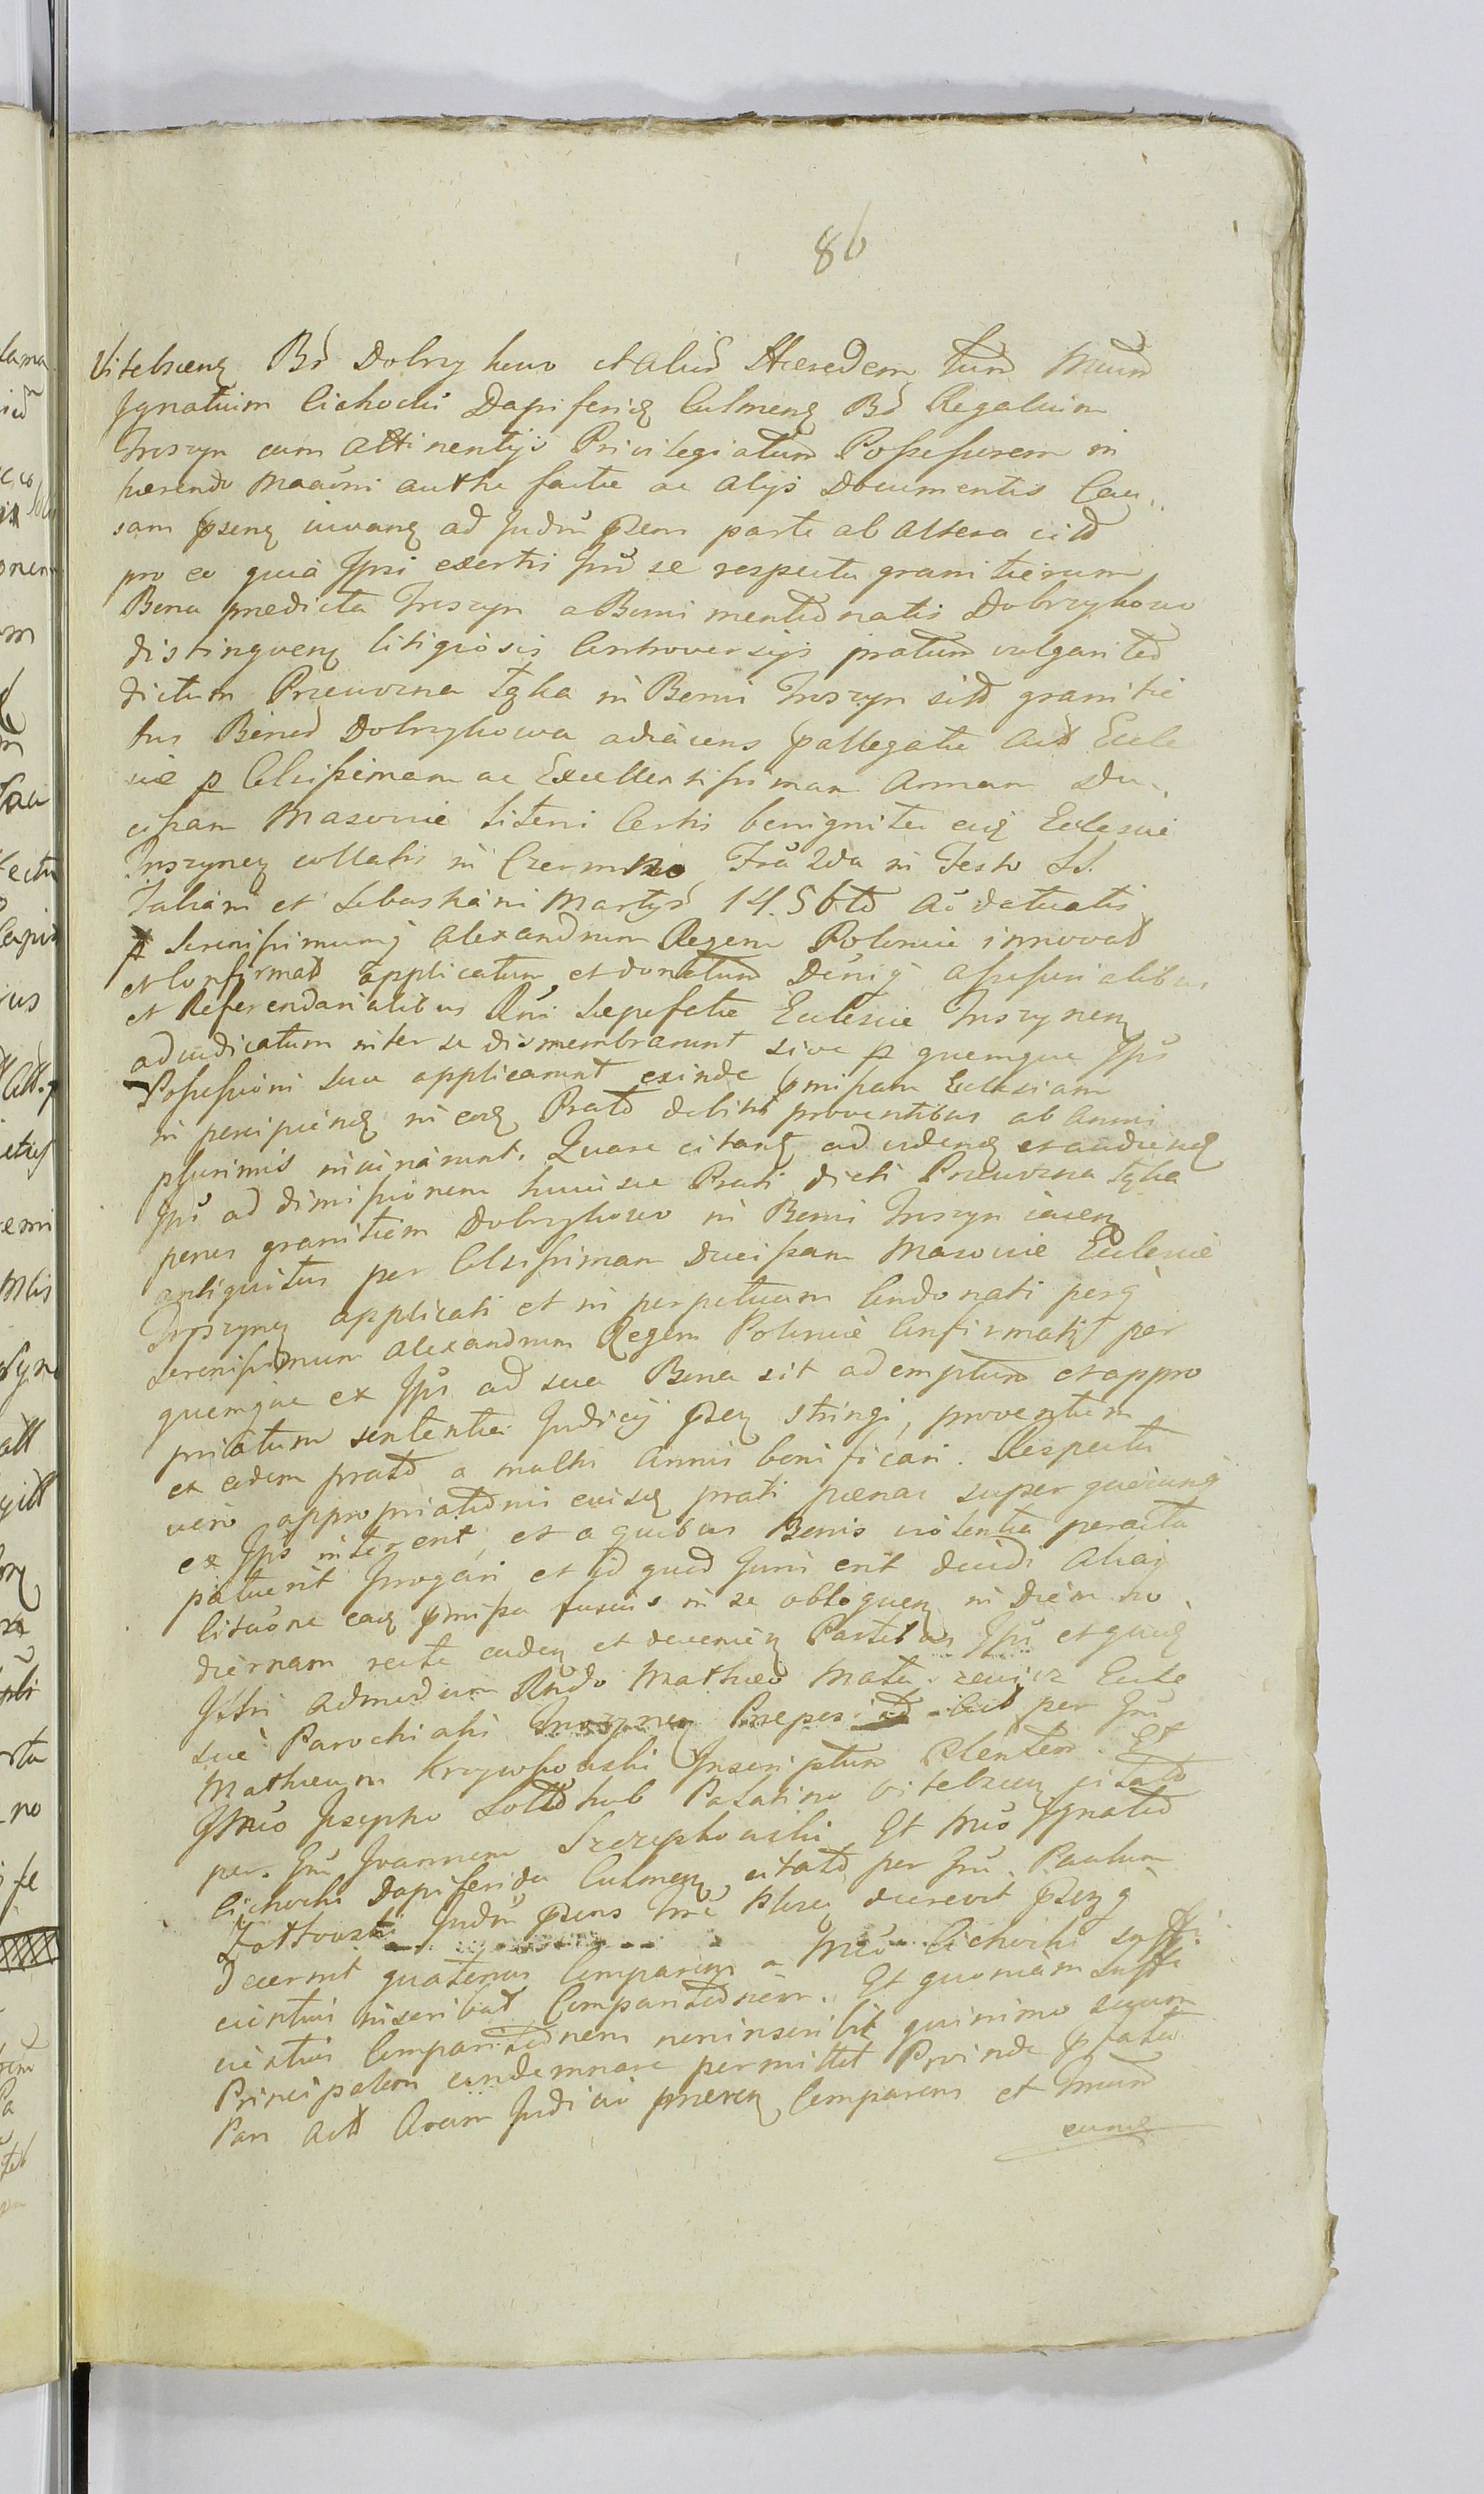 86
Vitebscen Br̃ Dobrzykowo et aliud Hæredem tum Mcum
Ignatium Cichocki Dapiferid Culmen Br̃ Regalium
Troszyn cum attinentijs Privilegiatum Possessorem in
hærendo maaõni authæ factæ ac alijs Documentis Cau..
sam pseng iuvang ad Judm psens parte ab altera citt
pro eo quia Ipsi exertis Inr̃ se respectu granitierum
Bona predicta Troszyn a Bonis mentionatis Dobrzykowo
distinguen litigiosis Controversijs pratum vulgariter
dictum Przewozna Łąka in Bonis Troszyn sitt granitie
bus Bonor Dobrzykowa adiacens pallegatæ Act Eccle
siæ p Celsissimam ac Excellentissimam Annam Du..
cissam Masoviæ literis Certis benignite eid Eclesiæ
Troszynen collatis in Czermno Fra 2da in Festo SS.
Fabiani et Sebastiani Martyr 1456to Ao datuatis
p Serenissimumq Alexandrum Regem Poloniæ innovat
et Confirmat applicatum et donatum Deniq Assessorialibus
et Referendarialibus Rni Sæpefatæ Eclesiæ Troszynen
adiudicatum inter se dismembrarunt sive p quemque Ips
Possessioni suæ applicarunt exinde pmissam Eclesiam
in percipiend in eod Prato debitis proventibus ab annis
plurimis iniuriarunt. Quare citant ad videnq et audiend
Ips ad dimissionem huiusce Prati dicti Przewozna Łąka
penes granitiem Dobrzykowo in Bonis Troszyn iacen
antiquitus per Celsissimam Ducissam Masoviæ Eclesiæ
Troszynen applicati et in perpetuum Condonati perq
Serenissimum Alexandrum Regem Poloniæ Confirmati per
quemque ex Ips ad sua Bona sit ademptum et appro
priatum sententia Judicij psen stringi, proventum
ex eodem prato a multis Annis bonificari. Respectu
vero appropriationis eiusd prati pænas super quoscunq
ex Ips interent, et a quibus Bonis violentia peracta
patuerit Irrogari et id quod Juris erit decidi Alias
litisõne eaq pmissa fusius in se obloquen in Diem ho.
diernam recte caden et devenien Partibus Ips et quid
Ipsi Admodum Rndo Mathæo Mate..zewicz Eccle
siæ Parochialis Troszynen Præpos.. Act per Gni
Mathæum Krzywkowski Inscriptum Clentem. Et
Illmo Josepho Sołłohub Palatino Vitebscen citato
per Gni Joannem Szczepkowski Et Mco Ignatio
Cichocki Dapiferida Culmen citato per Gni Paulum
Zołtowski Judm psens hæc decrevit pseng
Decernit quatenus Comparens a Mco Cichocki suffi.
cientius inscribat Comparitionem. Et quoniam Suffi
cientius Comparitionem non inscribit quinimo suum
Principalem condemnare permittit Proinde pfata
Pars Act Coram Judicio psen Comparens et Mcum
eund